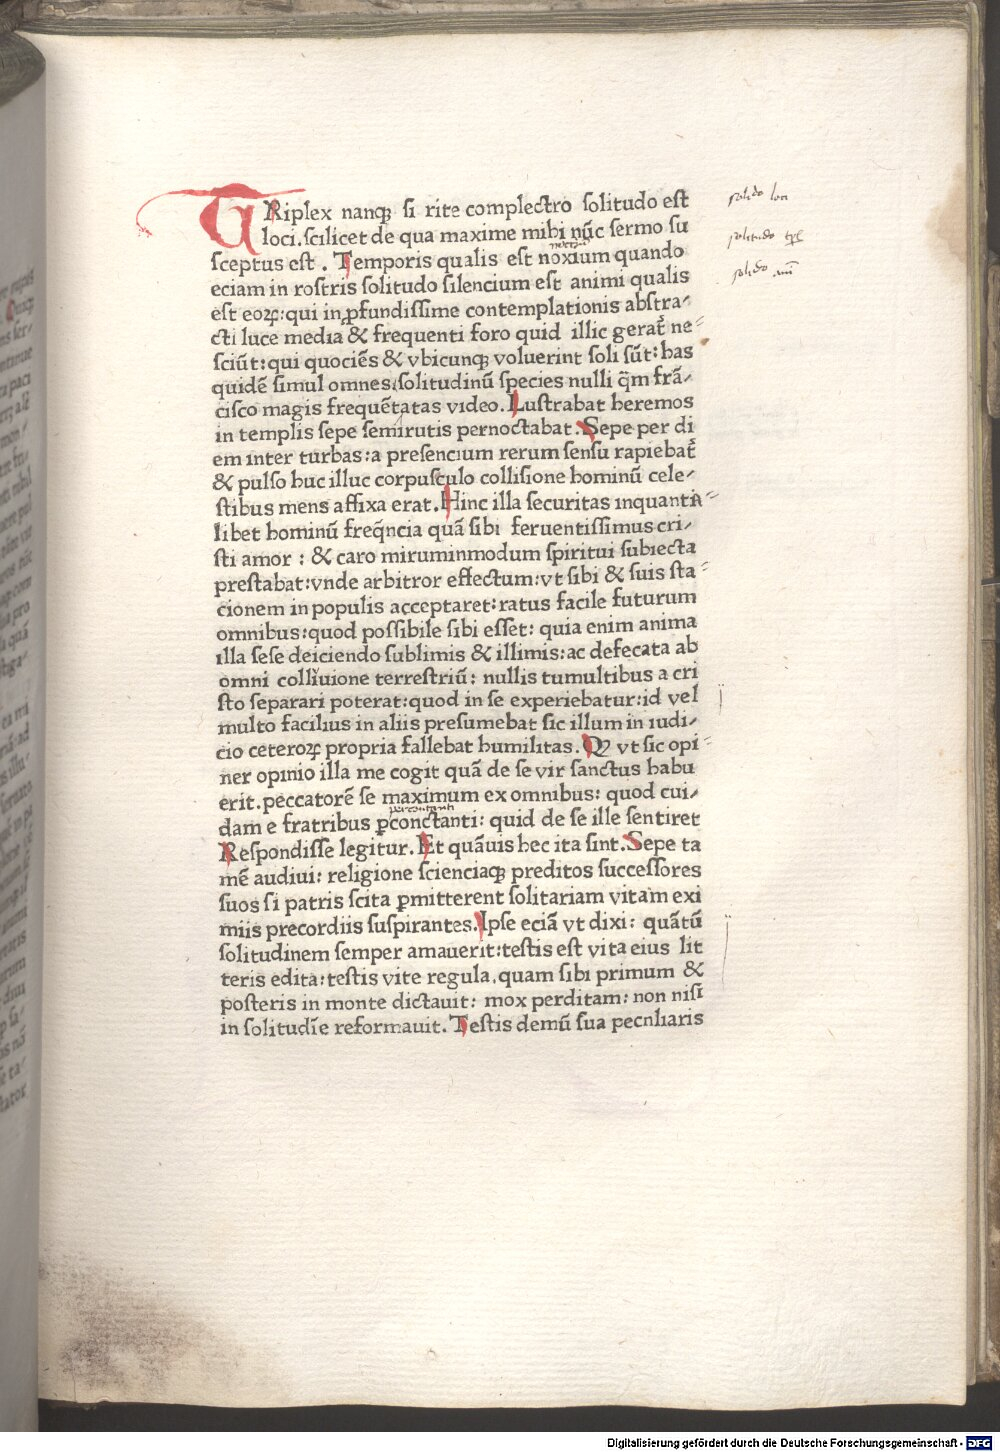 TRiplex nanqꝫ si rite complectro solitudo est
loci.scilicet de qua maxime mihi nūc sermo su
sceptus est . Temporis qualis est noxium quando
eciam in rostris solitudo silencium est animi qualis
est eoꝝ:qui in ꝓfundissime contemplationis abstra⸗
cti luce media & frequenti foro quid illic gerat̄ ne⸗
sciūt:qui quociēs & vbicunqꝫ voluerint soli sūt:has
quidē simul omnes solitudinū species nulli q̄m frā⸗
cisco magis frequētatas video.Lustrabat heremos
in templis sepe semirutis pernoctabat.Sepe per di
em inter turbas:a presencium rerum sensu rapiebat̄
& pulso huc illuc corpusculo collisione hominū cele⸗
stibus mens affixa erat.Hinc illa securitas inquantū⸗
libet hominū freq̄ncia quā sibi feruentissimus cri⸗
sti amor : & caro miruminmodum spiritui subiecta
prestabat:vnde arbitror effectum:vt sibi & suis sta⸗
cionem in populis acceptaret:ratus facile futurum
omnibus:quod possibile sibi esset: quia enim anima
illa sese deiciendo sublimis & illimis:ac defecata ab
omni colluuione terrestriū: nullis tumultibus a cri
sto separari poterat:quod in se experiebatur:id vel
multo facilius in aliis presumebat sic illum in iudi⸗
cio ceteroꝝ propria fallebat humilitas.Qꝫ vt sic opi⸗
ner opinio illa me cogit quā de se vir sanctus habu
erit.peccatorē se maximum ex omnibus: quod cui⸗
dam e fratribus ꝑconctanti: quid de se ille sentiret
Respondisse legitur.Et quāuis hec ita sint.Sepe ta
mē audiui: religione scienciaqꝫ preditos successores
suos si patris scita ꝑmitterent solitariam vitam exi
miis precordiis suspirantes.Ipse eciā vt dixi: quātū
solitudinem semper amauerit:testis est vita eius lit
teris edita:testis vite regula,quam sibi primum &
posteris in monte dictauit: mox perditam: non nisi
in solitudīe reformauit.Testis demū sua pecnliaris
solitudo loci
solitudo
solitudo
Digitalisierung gefördert durch die Deutsche Forschungsgemeinschaft - DFG